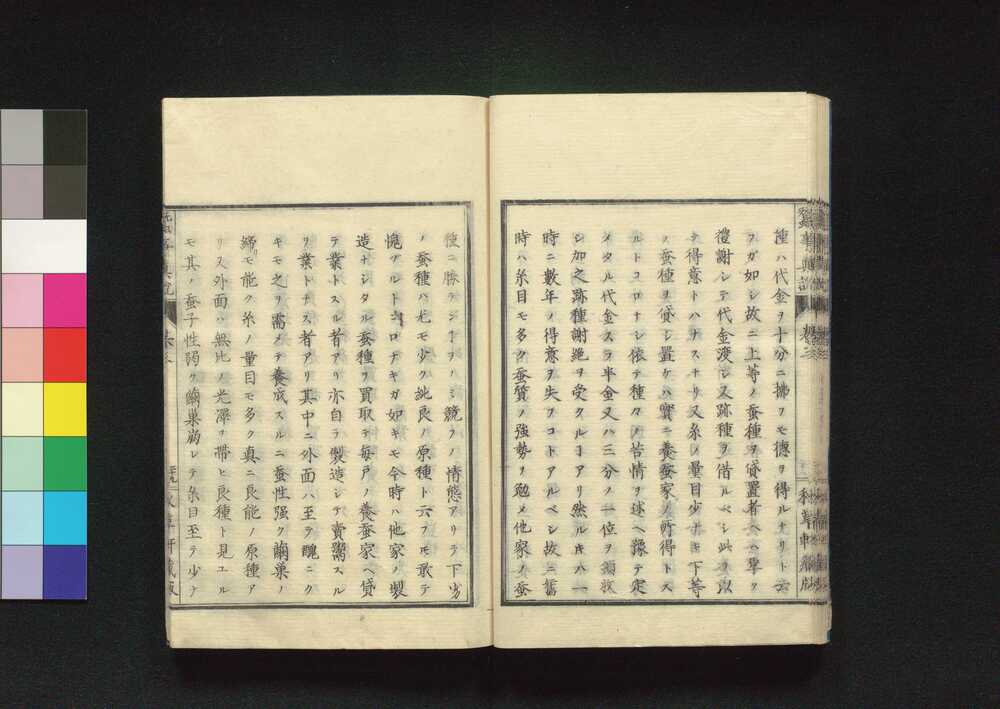 種ハ代金ヲ十分ニ拂フモ德ヲ得ルナリト云
フガ如シ故ニ上等ノ蚕種ヲ貸置者ヘハ早ク
禮謝シテ代金渡シ又跡種ヲ借ルベシ此ヲ以
テ得意トハナスナリ又糸ノ量目少ナキ下等
ノ蚕種ヲ貸シ置ケハ實ニ養蚕家ノ所得トス
ルトコロナシ依テ種々ノ苦情ヲ述ヘ豫テ定
メタル代金スラ半金又ハ三分ノ一位ヲ
シ加之跡種謝絶ヲ受クルコアリ然ルキハ一
時ニ數年ノ得意ヲ失フコトアルベシ故ニ舊
時ハ糸目モ多ク蚕質ノ強勢ヲ勉メ他家ノ蚕
種ニ勝テシコヲハミ競フノ情態アリテ下劣
ノ蚕種ハ尤モ少ク純良ノ原種ト云フモ敢テ
愧ヅルトコロナキガ如キモ今時ハ他家ノ製
造ナシタル蚕種ヲ買取テ毎戸ノ養蚕家ヘ貸
テ業トスル者アリ亦自テ製造シテ賣鬻スル
ヲ業トナス者アリ其中ニ外面ハ至テ醜ニク
キモ之ヲ需メテ養成スルニ蚕性强ク繭巣ノ
締リモ能ク糸ノ量目モ多ク真ニ良能ノ原種ア
リ又外面ハ無比ノ光澤ヲ帶ヒ良種ト見ユル
モ其ノ蚕子性弱ク繭巣薄レテ糸目至テ少ナ